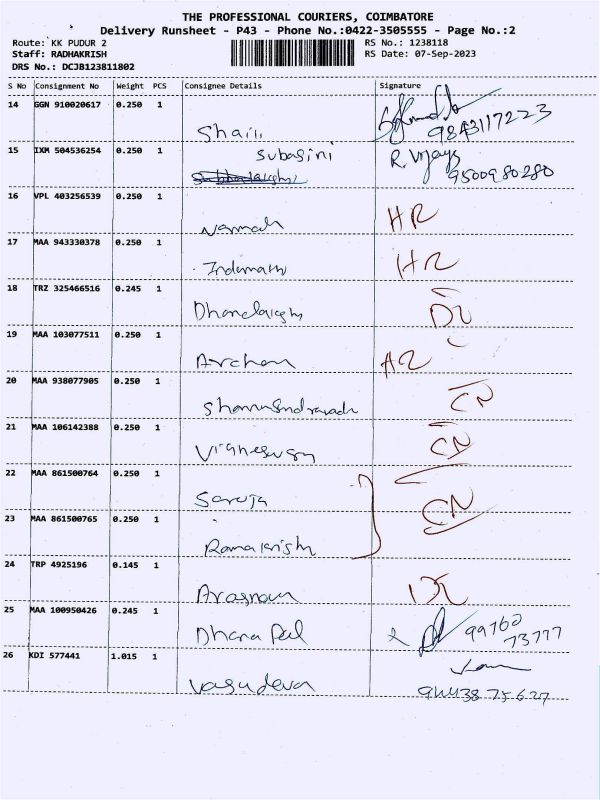 THE PROFESSIONAL COURIERS, COIMBATORE
Delivery Runsheet - P43 - Phone No.:0422-3505555 - Page No.:2
Route: KK PUDUR 2 RS No.: 1238118
Staff: RADHAKRISH RS Date: 07-Sep-2023
DRS No.: DCJB123811802
S No Consignment No Weight PCS Consignee Details Signature
14 GGN 910020617 0.250 1
Shaili 9843117223
15 IXM 504536254 0.250 1 Subasini R. Vijaya
9500980280
16 VPL 403256539 0.250 1 HR
Narmadh
17 MAA 943330378 0.250 1 HR
Indumathi
18 TRZ 325466516 0.245 1
Dhanalaksh DL
19 MAA 103077511 0.250 1
Archan AR
20 MAA 938077905 0.250 1 CN
21 MAA 106142388 0.250 1 CN
Vigneswary
22 MAA 861500764 0.250 1
Saroja CN
23 MAA 861500765 0.250 1
Ramakrish
24 TRP 4925196 0.145 1
25 MAA 100950426 0.245 1 99760
Dhana Pal 73777
26 KDI 577441 1.015 1
Vasudeva 94438 75627